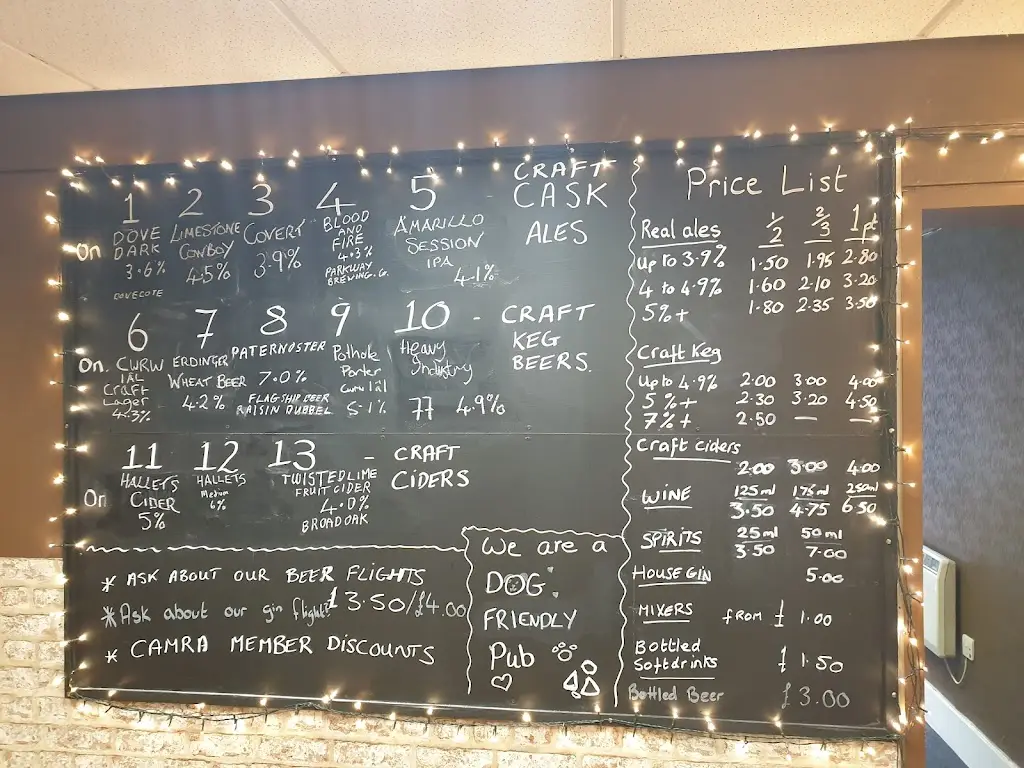 1 2 3 4 5 CRAFT CASK ALES
On
DOVE DARK 3.6% DOVECOTE
LIMESTONE COWBOY 4.5%
COVERT 3.9%
BLOOD AND FIRE 4.3% PARKWAY BREWING. Co.
AMARILLO SESSION IPA 4.1%
6 7 8 9 10 - CRAFT KEG BEERS.
On.
CURW IAL Craft Lager 4.3%
ERDINGER WHEAT BEER 4.2%
PATERNOSTER 7.0% FLAGSHIP BEER RAISIN DUBBEL
Pothole Porter Curw Ial 5.1%
Heavy Industry 77 4.9%
11 12 13 - CRAFT CIDERS
On
HALLETS CIDER 5%
HALLETS Medium 6%
TWISTED LIME FRUIT CIDER 4.0% BROADOAK
* ASK ABOUT OUR BEER FLIGHTS
* Ask about our gin flights £3.50/£4.00
* CAMRA MEMBER DISCOUNTS
We are a
DOG
FRIENDLY
Pub
Price List
Real ales 1/2 2/3 1pt
Up to 3.9% 1.50 1.95 2.80
4 to 4.9% 1.60 2.10 3.20
5%+ 1.80 2.35 3.50
Craft Keg
Up to 4.9% 2.00 3.00 4.00
5%+ 2.30 3.20 4.50
7%+ 2.50 — —
Craft Ciders
2.00 3.00 4.00
WINE 125ml 175ml 250ml
3.50 4.75 6.50
SPIRITS 25ml 50ml
3.50 7.00
HOUSE GIN 5.00
MIXERS from £1.00
Bottled
Softdrinks £1.50
Bottled Beer £3.00